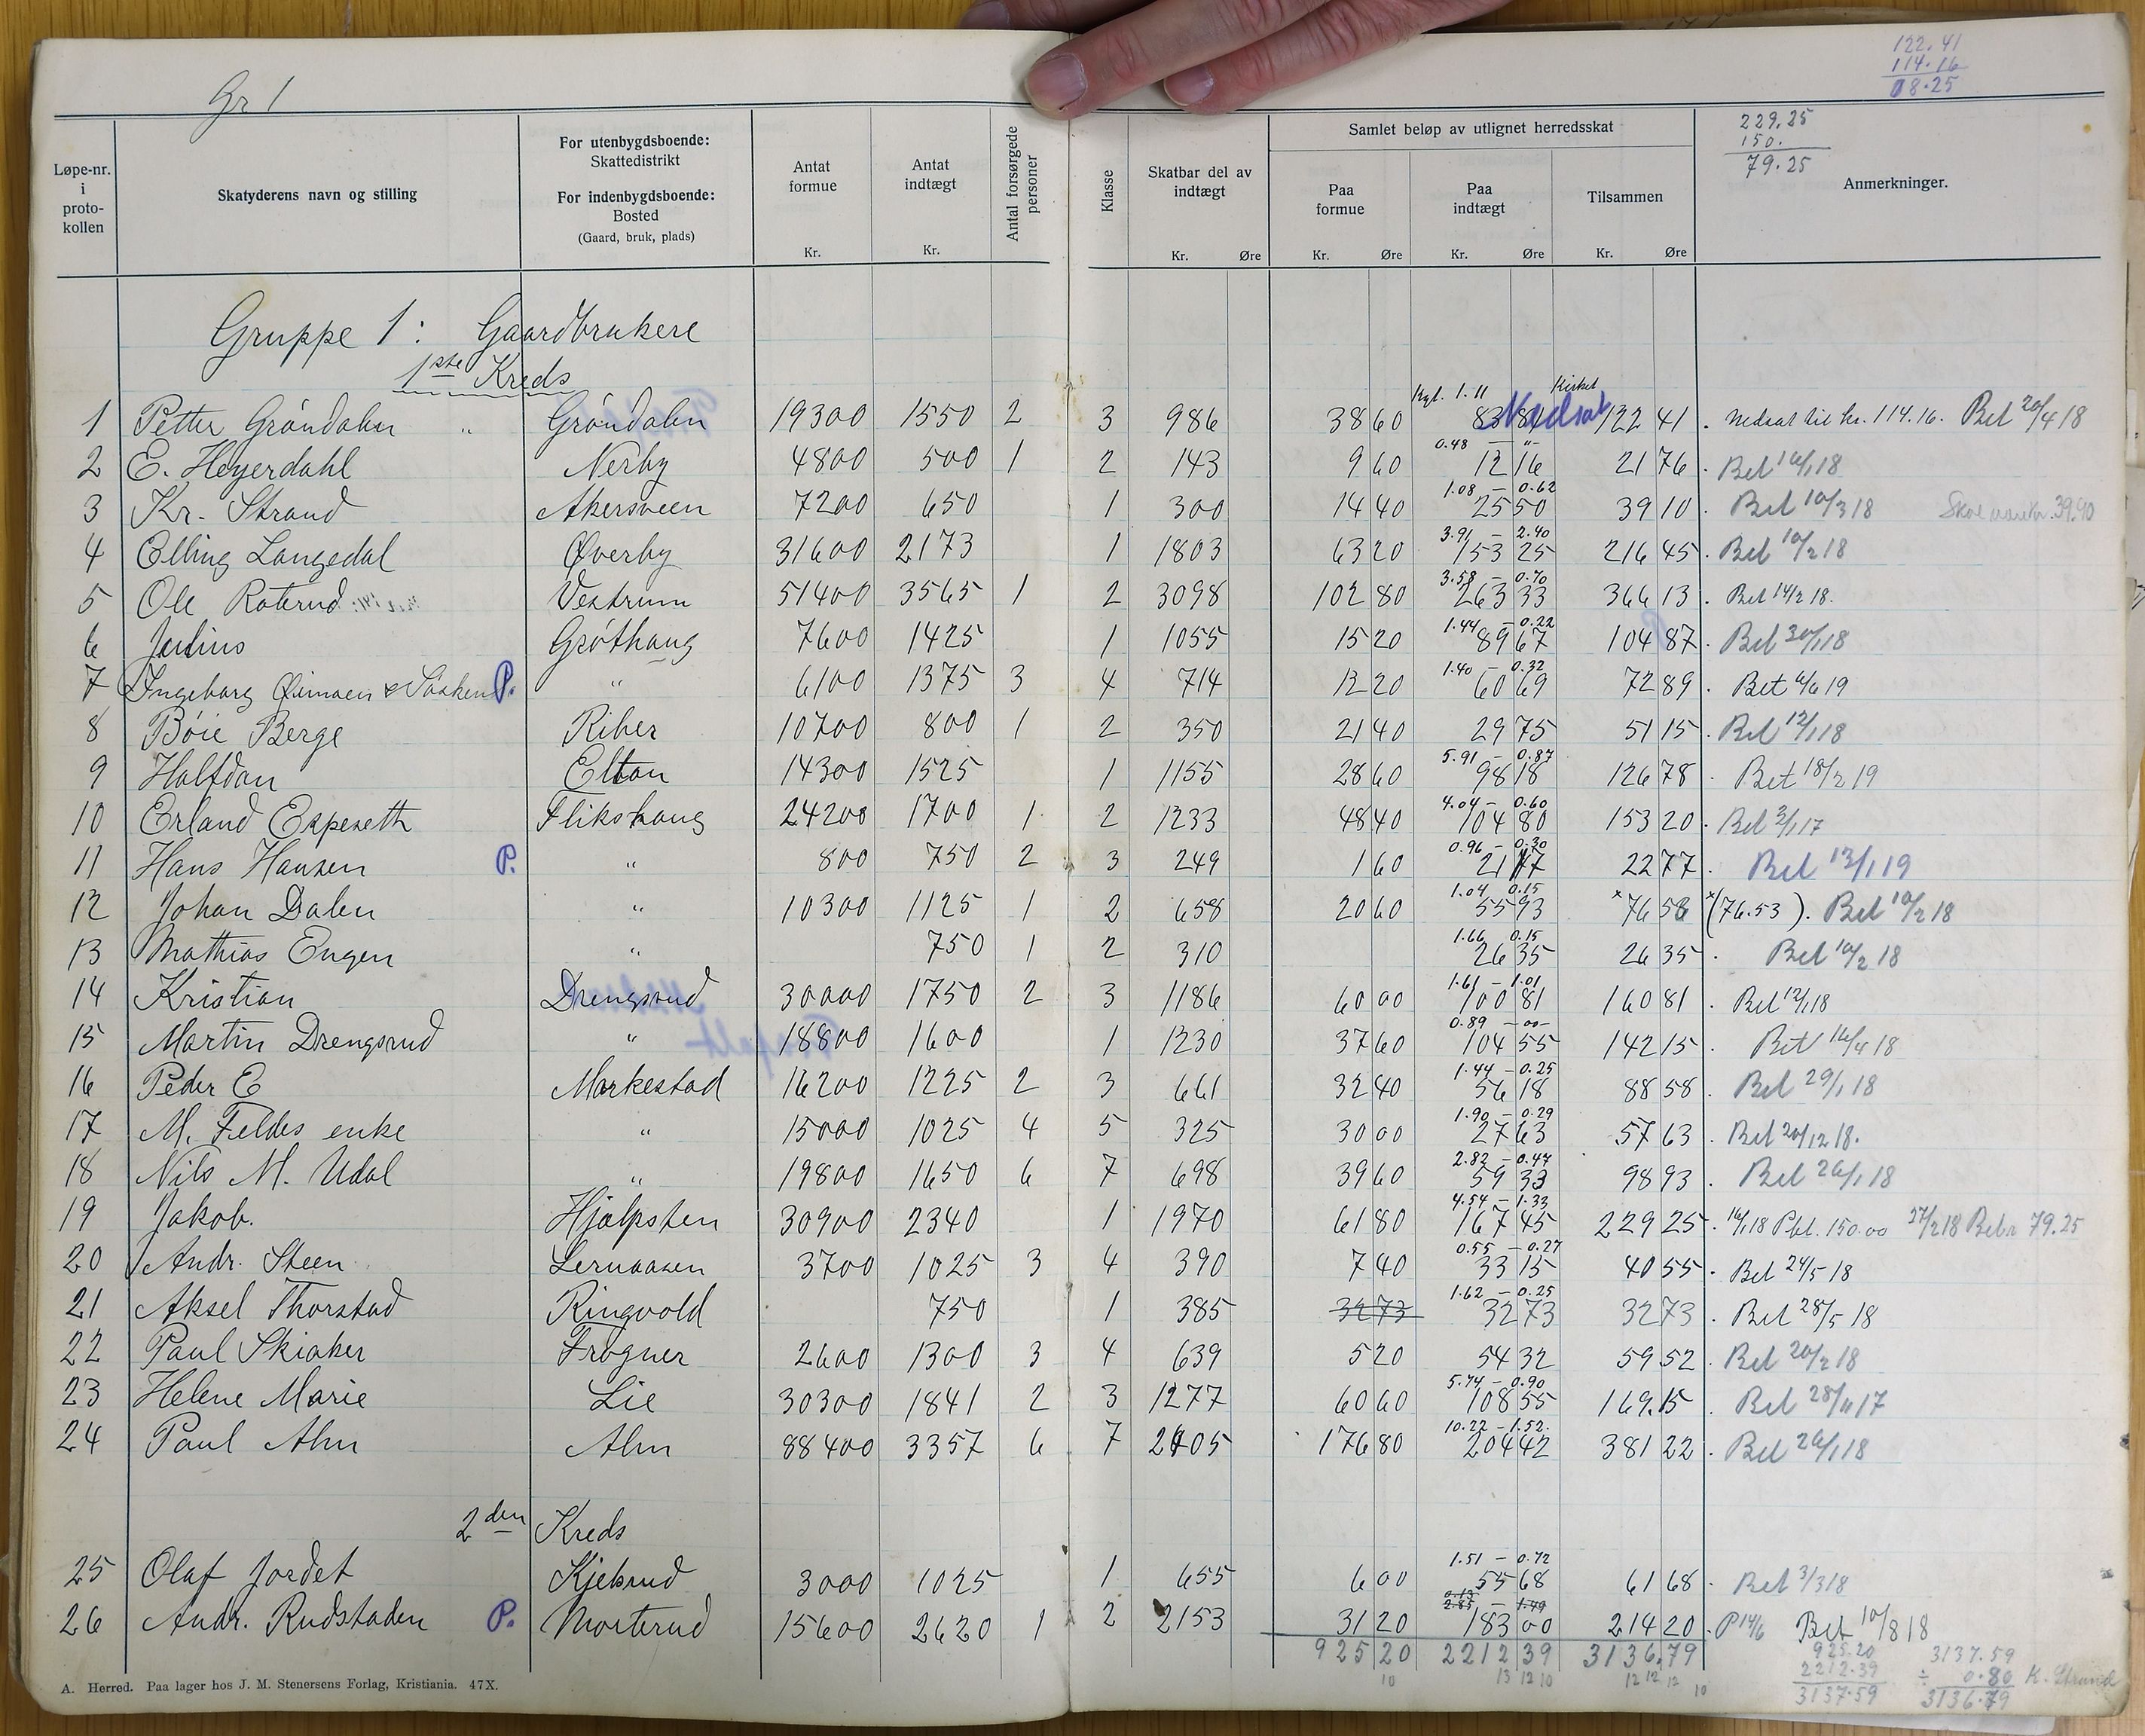 Gr 1
122.41
114.16
08.25
229.25
150.
79.25
Løpe-nr. i proto-kollen | Skatyderens navn og stilling | For utenbygdsboende: Skattedistrikt For indenbygdsboende: Bosted (Gaard, bruk, plads) | Antat formue Kr. | Antat indtægt Kr. | Antal forsørgede personer | Klasse | Skatbar del av indtægt Kr. Øre | Samlet beløp av utlignet herredsskat | Paa formue Kr. Øre | Paa indtægt Kr. Øre | Tilsammen Kr. Øre | Anmerkninger.
Gruppe 1: Gaardbrukere
1ste Kreds
1 Petter Gröndalen " Gröndalen 19300 1550 2 3 986 38 60 83 81 Nedsat 122 41 . Nedsat til kr. 114.16. Bet 20/4 18
0.48 — "
2 E. Heyerdahl Nerby 4800 500 1 2 143 9 60 12 16 21 76 . Bet 16/1 18
1.08 — 0.62
3 Kr. Strand Akersveen 7200 650 1 300 14 40 25 50 39 10 . Bet 10/3 18 39.90
3.91 — 2.40
4 Elling Langedal Øverby 31600 2173 1 1803 63 20 153 25 216 45 . Bet 10/2 18
3.58 — 0.70
5 Ole Roterud Vestrum 51400 3565 1 2 3098 102 80 263 33 366 13 . Bet 14/2 18.
1.44 — 0.22
6 Julius Gröthaug 7600 1425 1 1055 15 20 89 67 104 87 . Bet 30/1 18
1.40 — 0.32
7 Ingeborg P. " 6100 1375 3 4 714 12 20 60 69 72 89 . Bet 6/6 19
8 Böie Berge Riber 10700 800 1 2 350 21 40 29 75 51 15 . Bet 12/1 18
5.91 — 0.87
9 Halfdan Elton 14300 1525 1 1155 28 60 98 18 126 78 . Bet 18/2 19
4.04 — 0.60
10 Erland Espeseth Flikshaug 24200 1700 1 2 1233 48 40 104 80 153 20 . Bet 3/1 17
0.96 — 0.30
11 Hans Hansen P. " 800 750 2 3 249 1 60 21 17 22 77 . Bet 13/1 19
1.04 0.15
12 Johan Dalen " 10300 1125 1 2 658 20 60 55 93 x 76 58 x (76.53). Bet 10/2 18
1.66 0.15
13 Mathias Engen " 750 1 2 310 26 35 26 35 . Bet 10/2 18
1.61 — 1.01
14 Kristian Drengsrud 30000 1750 2 3 1186 60 00 100 81 160 81 . Bet 12/1 18
0.89 — 00 —
15 Martin Drengsrud " 18800 1600 1 1230 37 60 104 55 142 15 . Bet 16/4 18
1.44 — 0.25
16 Peder E Markestad 16200 1225 2 3 661 32 40 56 18 88 58 . Bet 29/1 18
1.90 — 0.29
17 M. Feldes enke " 15000 1025 4 5 325 30 00 27 63 57 63 . Bet 20/12 18.
2.82 — 0.44
18 Nils M. Udal " 19800 1650 6 7 698 39 60 59 33 98 93 . Bet 26/1 18
4.54 — 1.33
19 Jakob. Hjelpsten 30900 2340 1 1970 61 80 167 45 229 25 . 16/1 18 Pbt. 150.00 27/2 18 79.25
0.55 — 0.27
20 Andr. Steen Lernaasen 3700 1025 3 4 390 7 40 33 15 40 55 . Bet 24/5 18
1.62 — 0.25
21 Aksel Thorstad Ringvold 750 1 385 32 73 32 73 32 73 . Bet 28/5 18
22 Paul Skiaker Frogner 2600 1300 3 4 639 5 20 54 32 59 52 . Bet 20/2 18
5.74 — 0.90
23 Helene Marie Lie 30300 1841 2 3 1277 60 60 108 55 169.15 . Bet 28/11 17
10.22 — 1.52.
24 Paul Alm Alm 88400 3357 6 7 2405 176 80 204 42 381 22 . Bet 26/1 18
2den Kreds
1.51 — 0.72
25 Olaf Jordet Kjeksrud 3000 1025 1 655 6 00 55 68 61 68 . Bet 3/3 18
26 Andr. Rudstaden P. Morterud 15600 2620 1 2 2153 31 20 183 00 214 20 . P 14/6 Bet 10/8 18
925 20 2212 39 3136.79
10 13 12 10 12 12 12 10
925.20
2212.39
3137.59
3137.59
÷ 0.80 K. Strand
3136.79
A. Herred. Paa lager hos J. M. Stenersens Forlag, Kristiania. 47X.